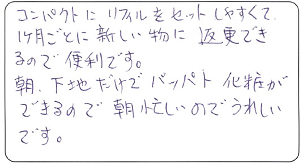 コンパクトにリフィルをセットしやすくて、
1ヶ月ごとに新しい物に返更でき
るので便利です。
朝、下地だけでパッパト化粧が
できるので朝忙しいのでうれしい
です。